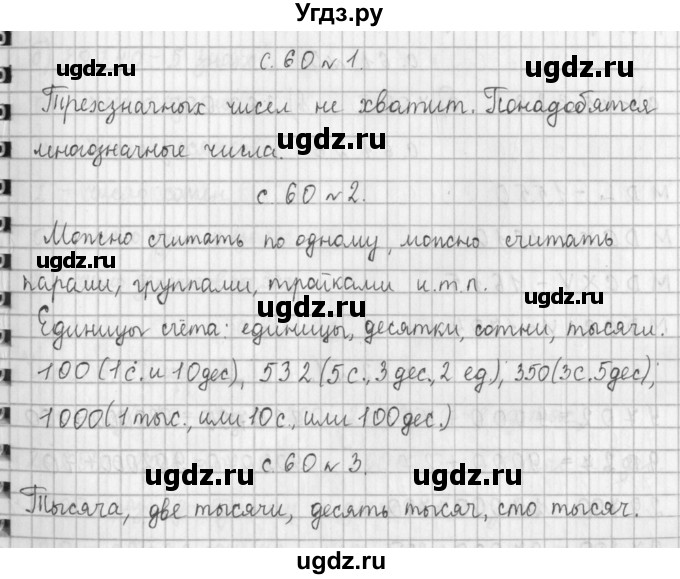 Угдз.ру
с. 60 №1.
ugdz.ru ugdz.ru
Трехзначных чисел не хватит. Понадобятся
многозначные числа.
ugdz.ru
с. 60 №2.
ugdz.ru
Можно считать по одному, можно считать
ugdz.ru
парами, группами, тройками и.т.п.
ugdz.ru
ugdz.ru
Единицы счёта: единицы, десятки, сотни, тысячи.
100 (1с. и 10дес), 532 (5с., 3 дес., 2 ед), 350 (3с. 5дес);
1000 (1 тыс., или 10с., или 100дес.)
с. 60 №3.
ugdz.ru ugdz.ru
Тысяча, две тысячи, десять тысяч, сто тысяч.
ugdz.ru